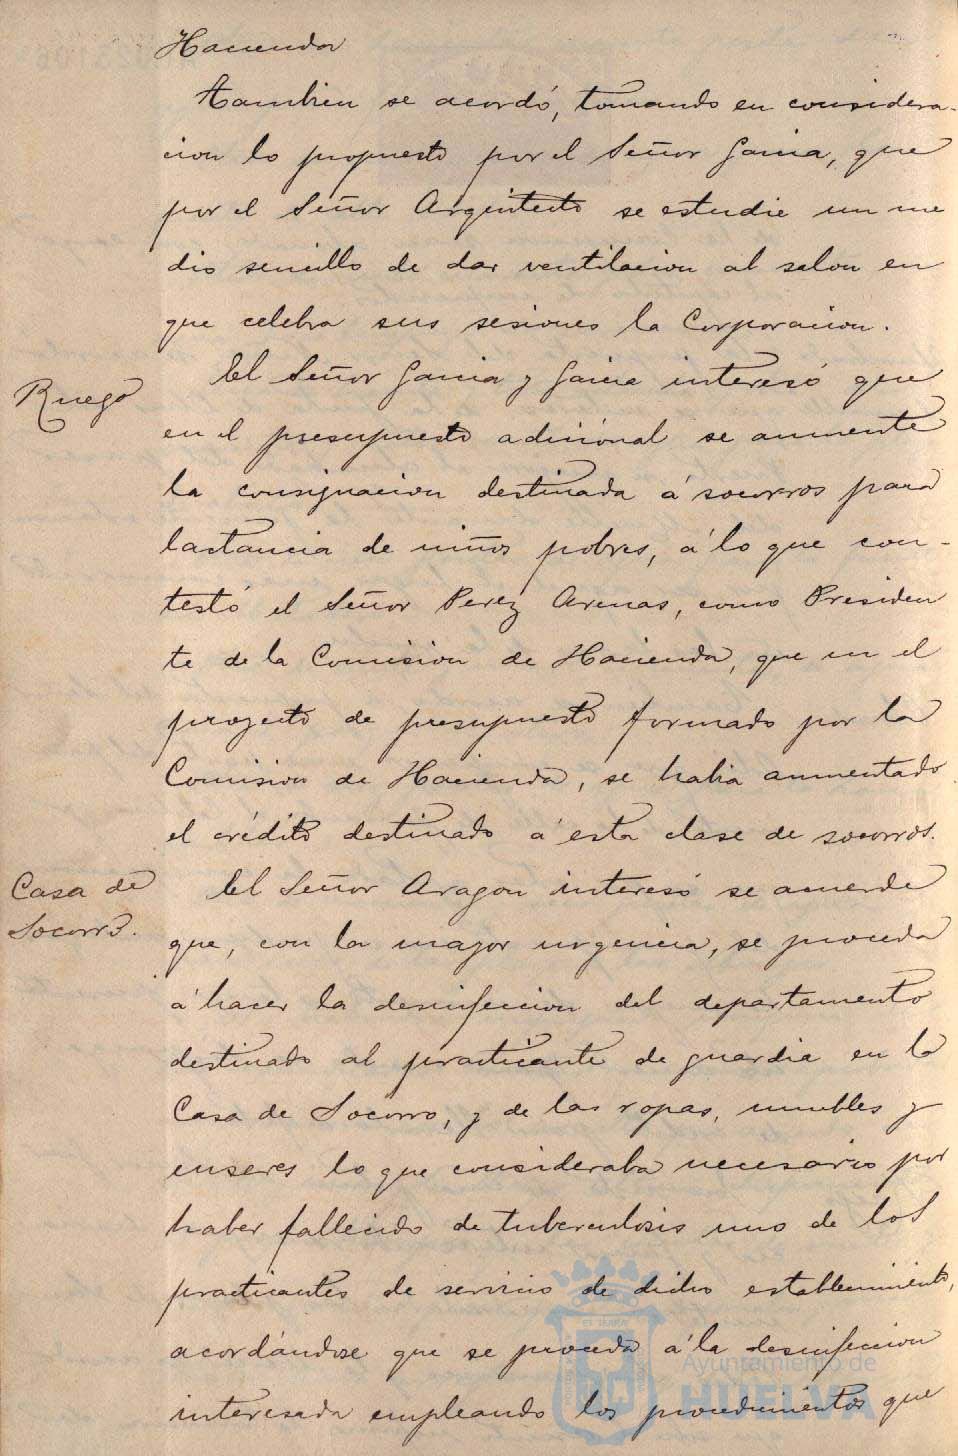 Hacienda
tambien se acordó, tomando en considera-
cion lo propuesto por el Señor Garcia, que
por el Señor Arquitecto se estudie un me
dio sencillo de dar ventilacion al salon en
que celebra sus sesiones la Corporacion.
Ruego
El Señor Garcia y Garcia interesó que
en el presupuesto adicional se aumente
la consignacion destinada á socorros para
lactancia de niños pobres, á lo que con-
testó el Señor Perez Arenas, como Presiden
te de la Comision de Hacienda, que en el
proyecto de presupuesto formado por la
Comision de Hacienda, se habia aumentado
el crédito destinado á esta clase de socorros.
Casa de
Socorro.
El Señor Aragon interesó se acuerde
que, con la mayor urgencia, se proceda
á hacer la desinfeccion del departamento
destinado al practicante de guardia en la
Casa de Socorro, y de las ropas, muebles y
enseres lo que consideraba necesario por
haber fallecido de tuberculosis uno de los
practicantes de servicio de dicho establecimiento,
acordándose que se proceda á la desinfeccion
interesada empleando los procedimientos que
Ayuntamiento de
HUELVA